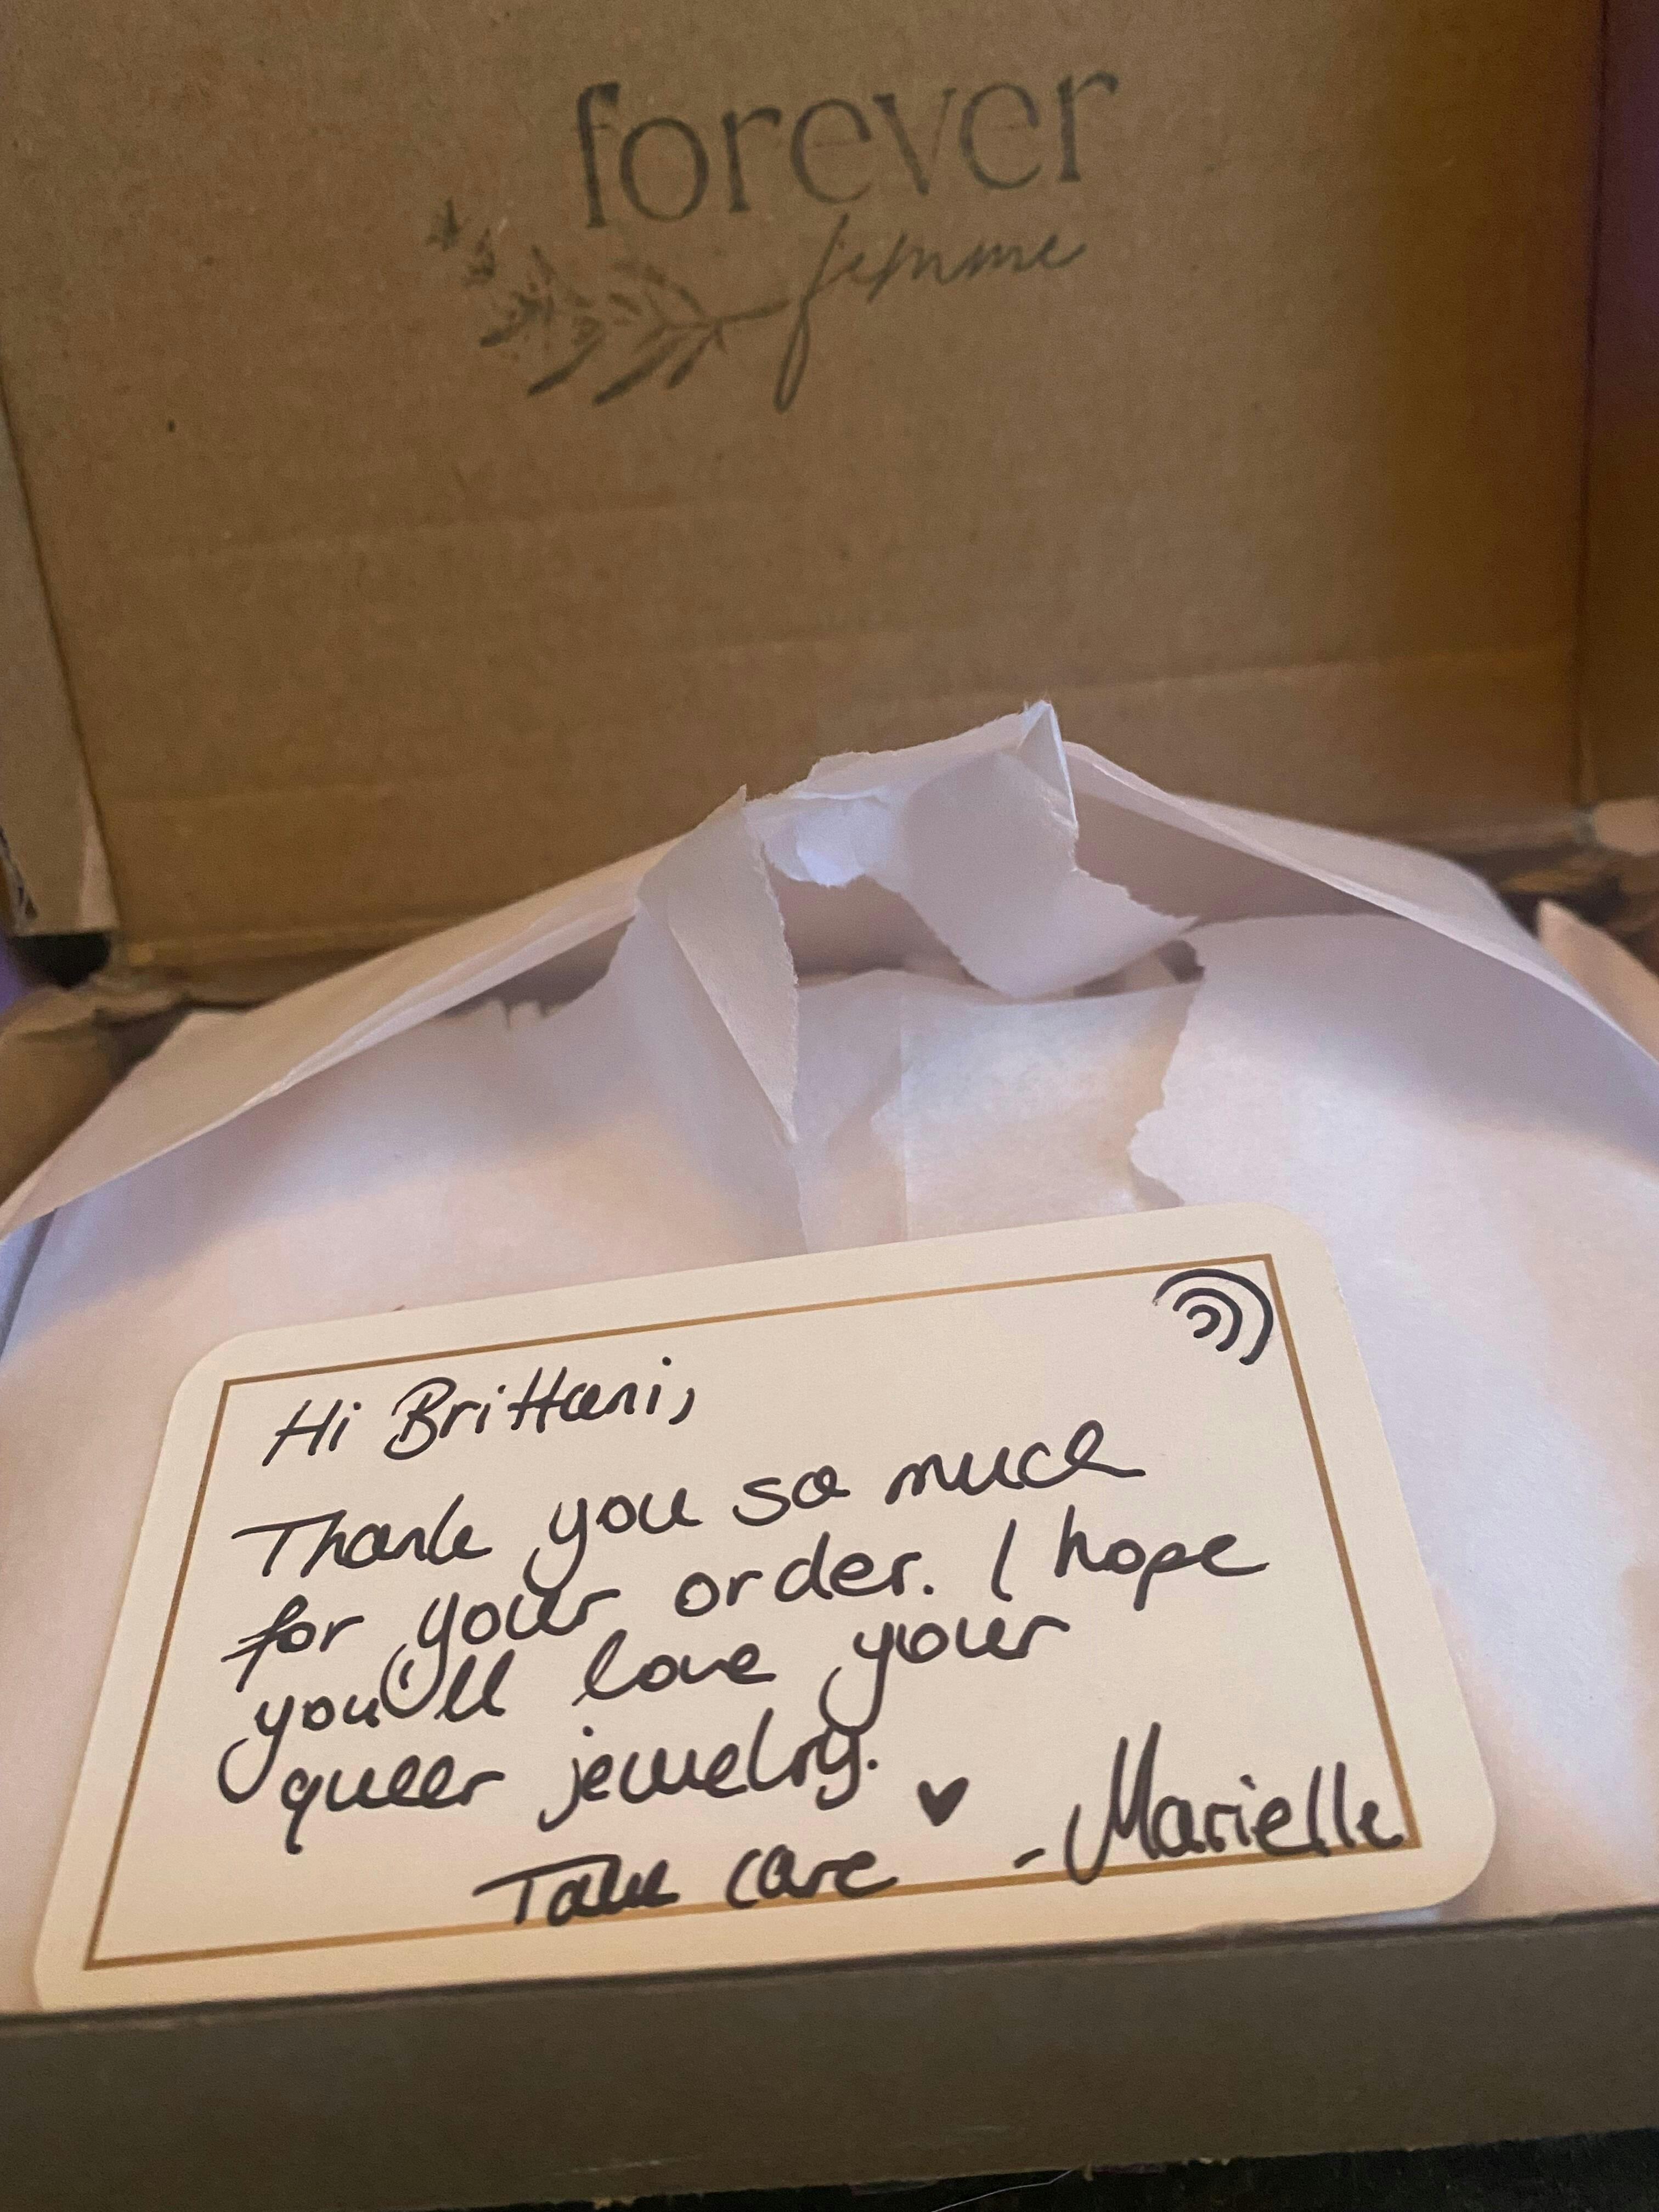 forever
femme
Hi Brittani,
Thank you so much
for your order. I hope
you'll love your
queer jewelry.
Take care - Marielle